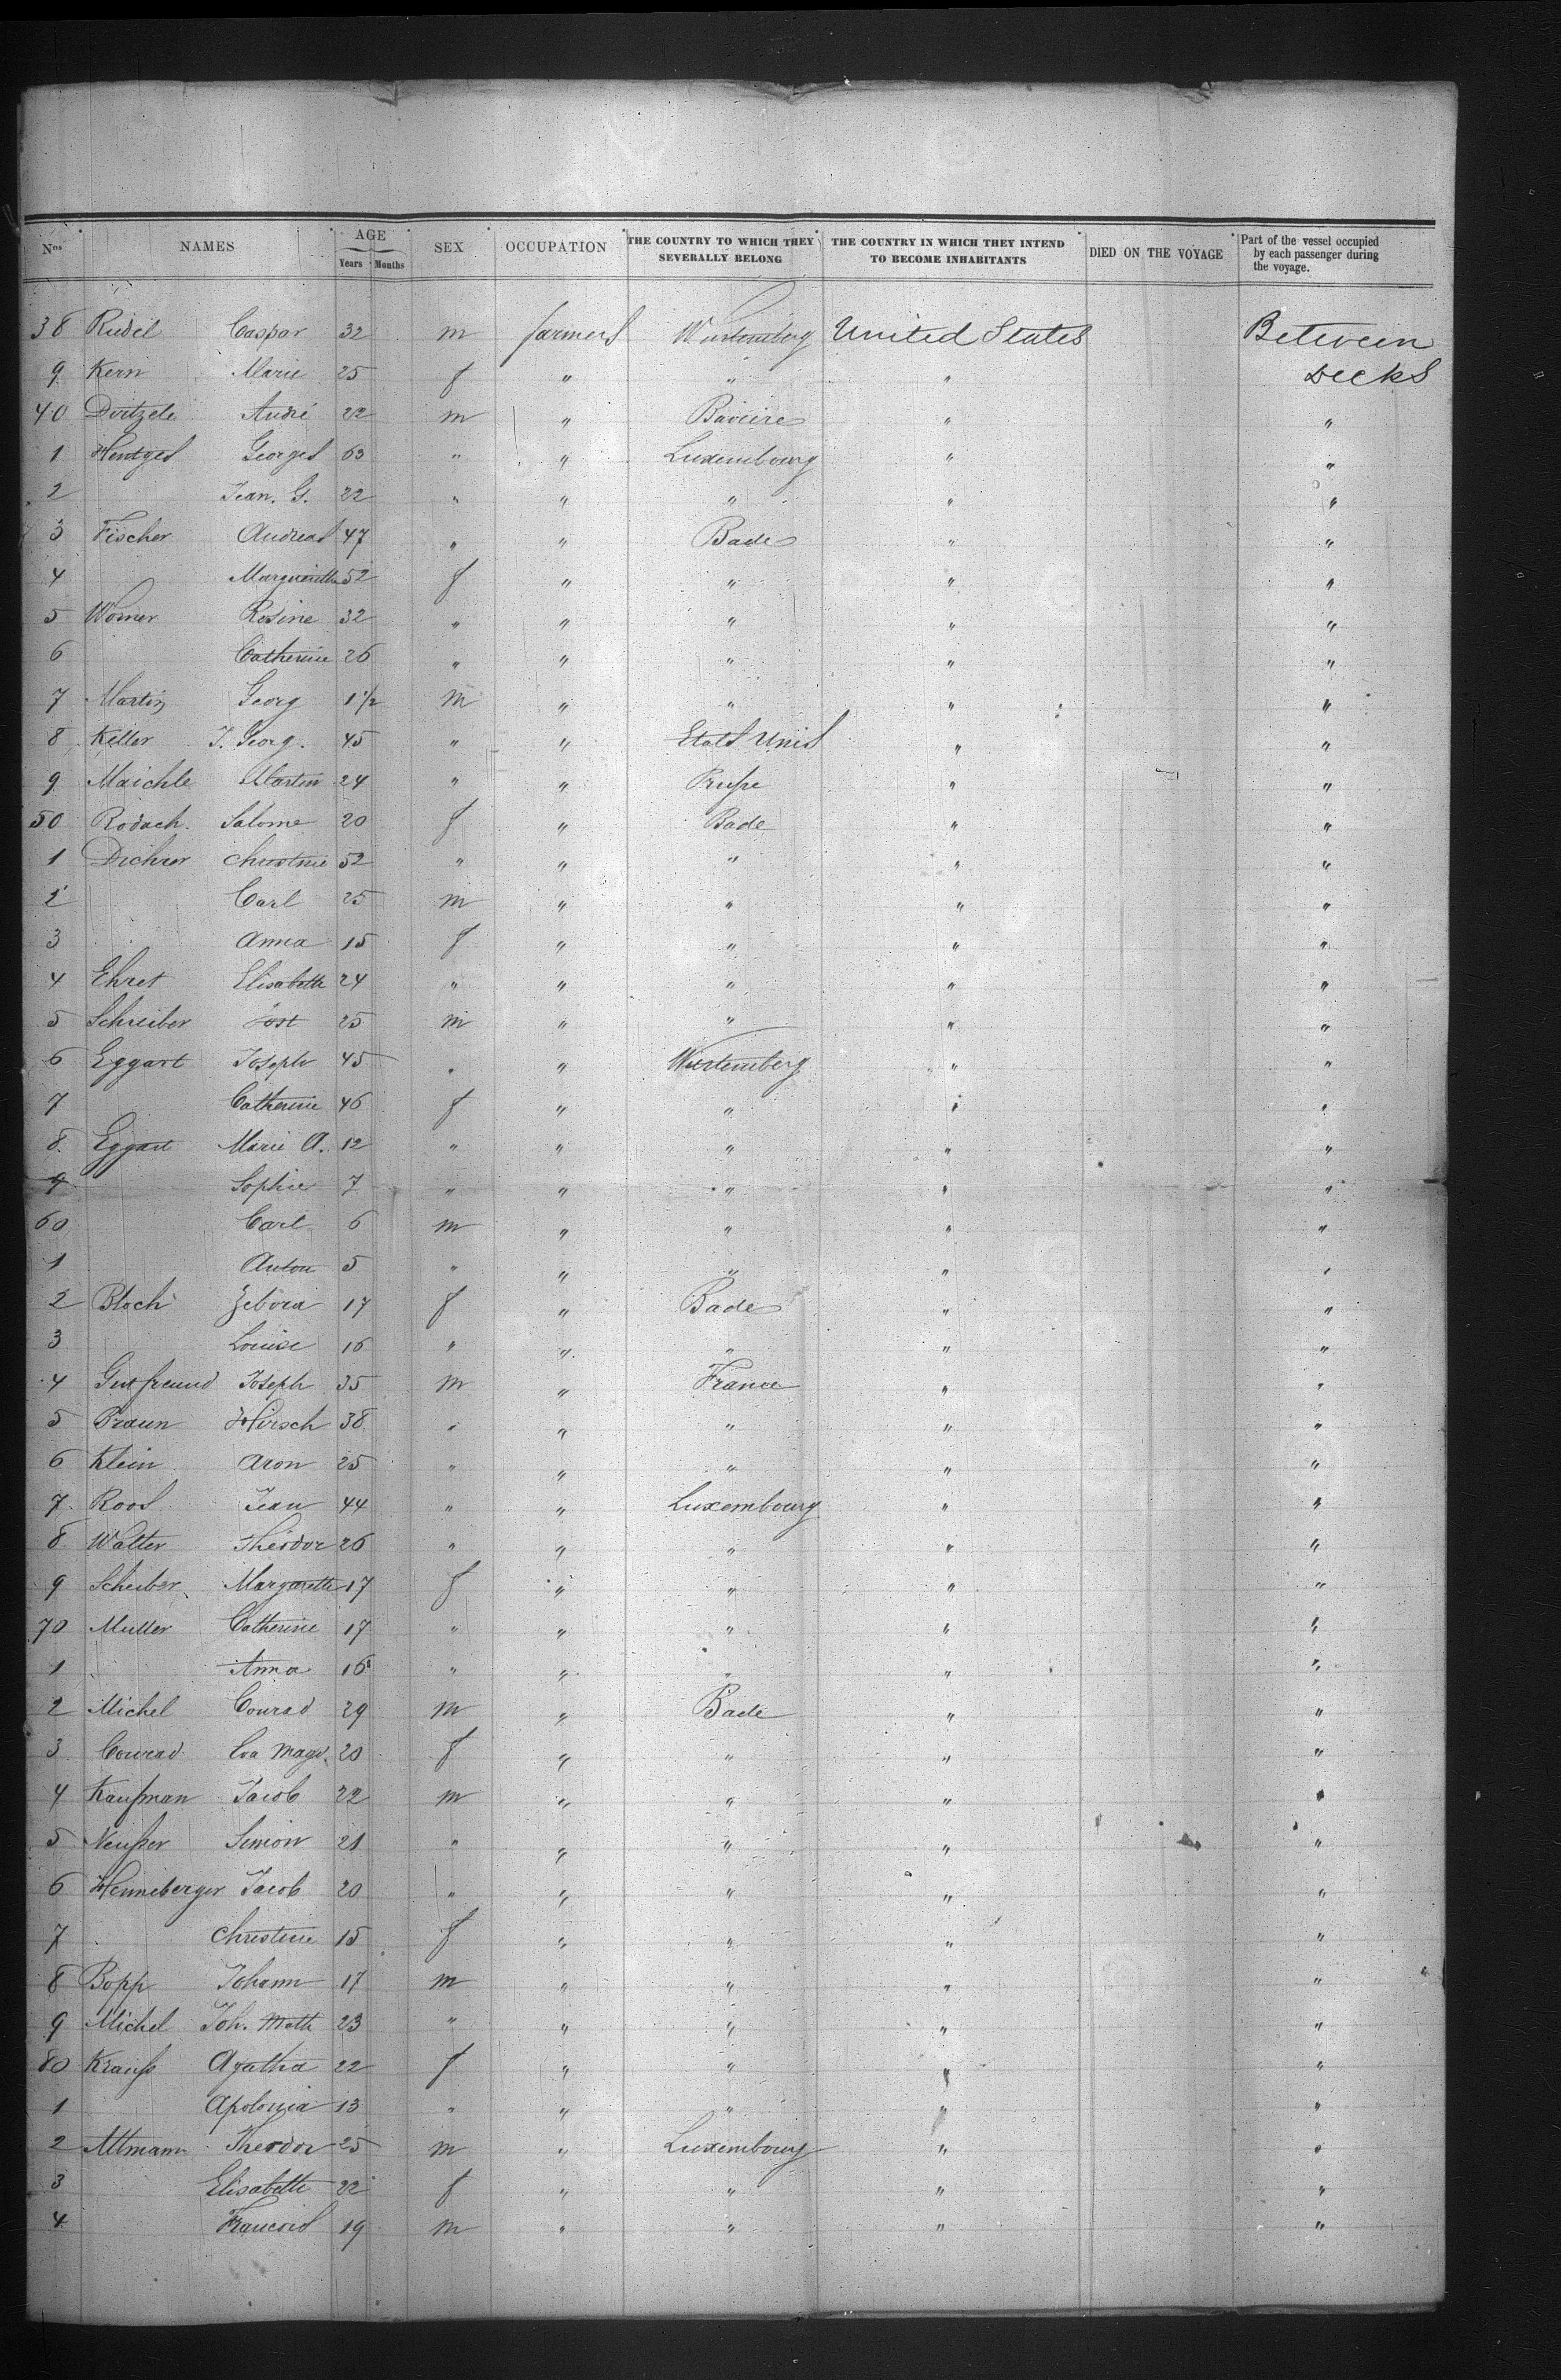 Nos NAMES AGE Years Months SEX OCCUPATION THE COUNTRY TO WHICH THEY SEVERALLY BELONG THE COUNTRY IN WHICH THEY INTEND TO BECOME INHABITANTS DIED ON THE VOYAGE Part of the vessel occupied by each passenger during the voyage.
38 Rudel Caspar 32 m farmers Wurtemberg United States Between
9 Kern Marie 25 f " " " Decks
40 André 22 m " Baviere " "
1 Hentges Georges 63 " " Luxembourg " "
2 Jean. G. 22 " " " " "
3 Fischer Andreas 47 " " Bade " "
4 Marguaretta 52 f " " " "
5 Worner Rosine 32 " " " " "
6 Catherine 26 " " " " "
7 Martin Georg 1 1/2 m " " " "
8 Keller J. Georg. 45 " " Etats Unis " "
9 Maichle Martin 24 " " Prusse " "
50 Rodach. Salome 20 f " Bade " "
1 Dichrer Christine 52 " " " " "
2 Carl 25 m " " " "
3 Anna 15 f " " " "
4 Ehret Elisabeth 24 " " " " "
5 Schreiber Jost 25 m " " " "
6 Eggart Joseph 45 " " Wurtemberg " "
7 Catherine 46 f " " " "
8. Eggart Marie A. 12 " " " " "
9 Sophie 7 " " " " "
60 Carl 6 m " " " "
1 Anton 5 " " " " "
2 Bloch Zebora 17 f " Bade " "
3 Louise 16 " " " " "
4 Gutfreund Joseph 35 m " France " "
5 Braun Hirsch 38 " " " " "
6 Klein Aron 25 " " " " "
7. Roos Jean 44 " " Luxembourg " "
8 Walter Théodor 26 " " " " "
9 Scheiber Margarette 17 f " " " "
70 Muller Catherine 17 " " " " "
1 Anna 16 " " " " "
2 Michel Conrad 29 m " Bade " "
3 Conrad Eva Magd. 20 f " " " "
4 Kaufman Jacob 22 m " " " "
5 Neusser Simion 21 " " " " "
6 Henneberger Jacob 20 " " " " "
7 Christine 15 f " " " "
8 Bopp Johann 17 m " " " "
9 Michel Joh. Math 23 " " " " "
80 Krauss Agatha 22 f " " " "
1 Apolonia 13 " " " " "
2 Altmann Theodor 25 m " Luxembourg " "
3 Elisabeth 22 f " " " "
4 Francois 19 m " " " "